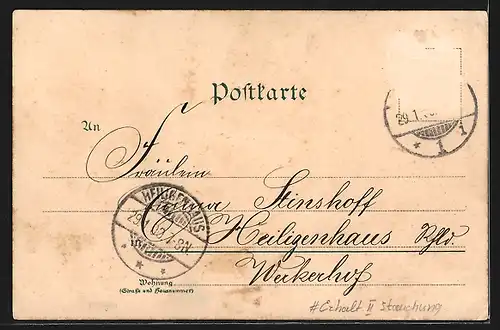 Postkarte
29.1.
* 1 1
An
Fräulein
Emma Stinshoff
HEILIGENHAUS
29
Heiligenhaus Rhld.
Weckerhof
Wohnung
(Straße und Hausnummer)
#Erhalt II Stauchung